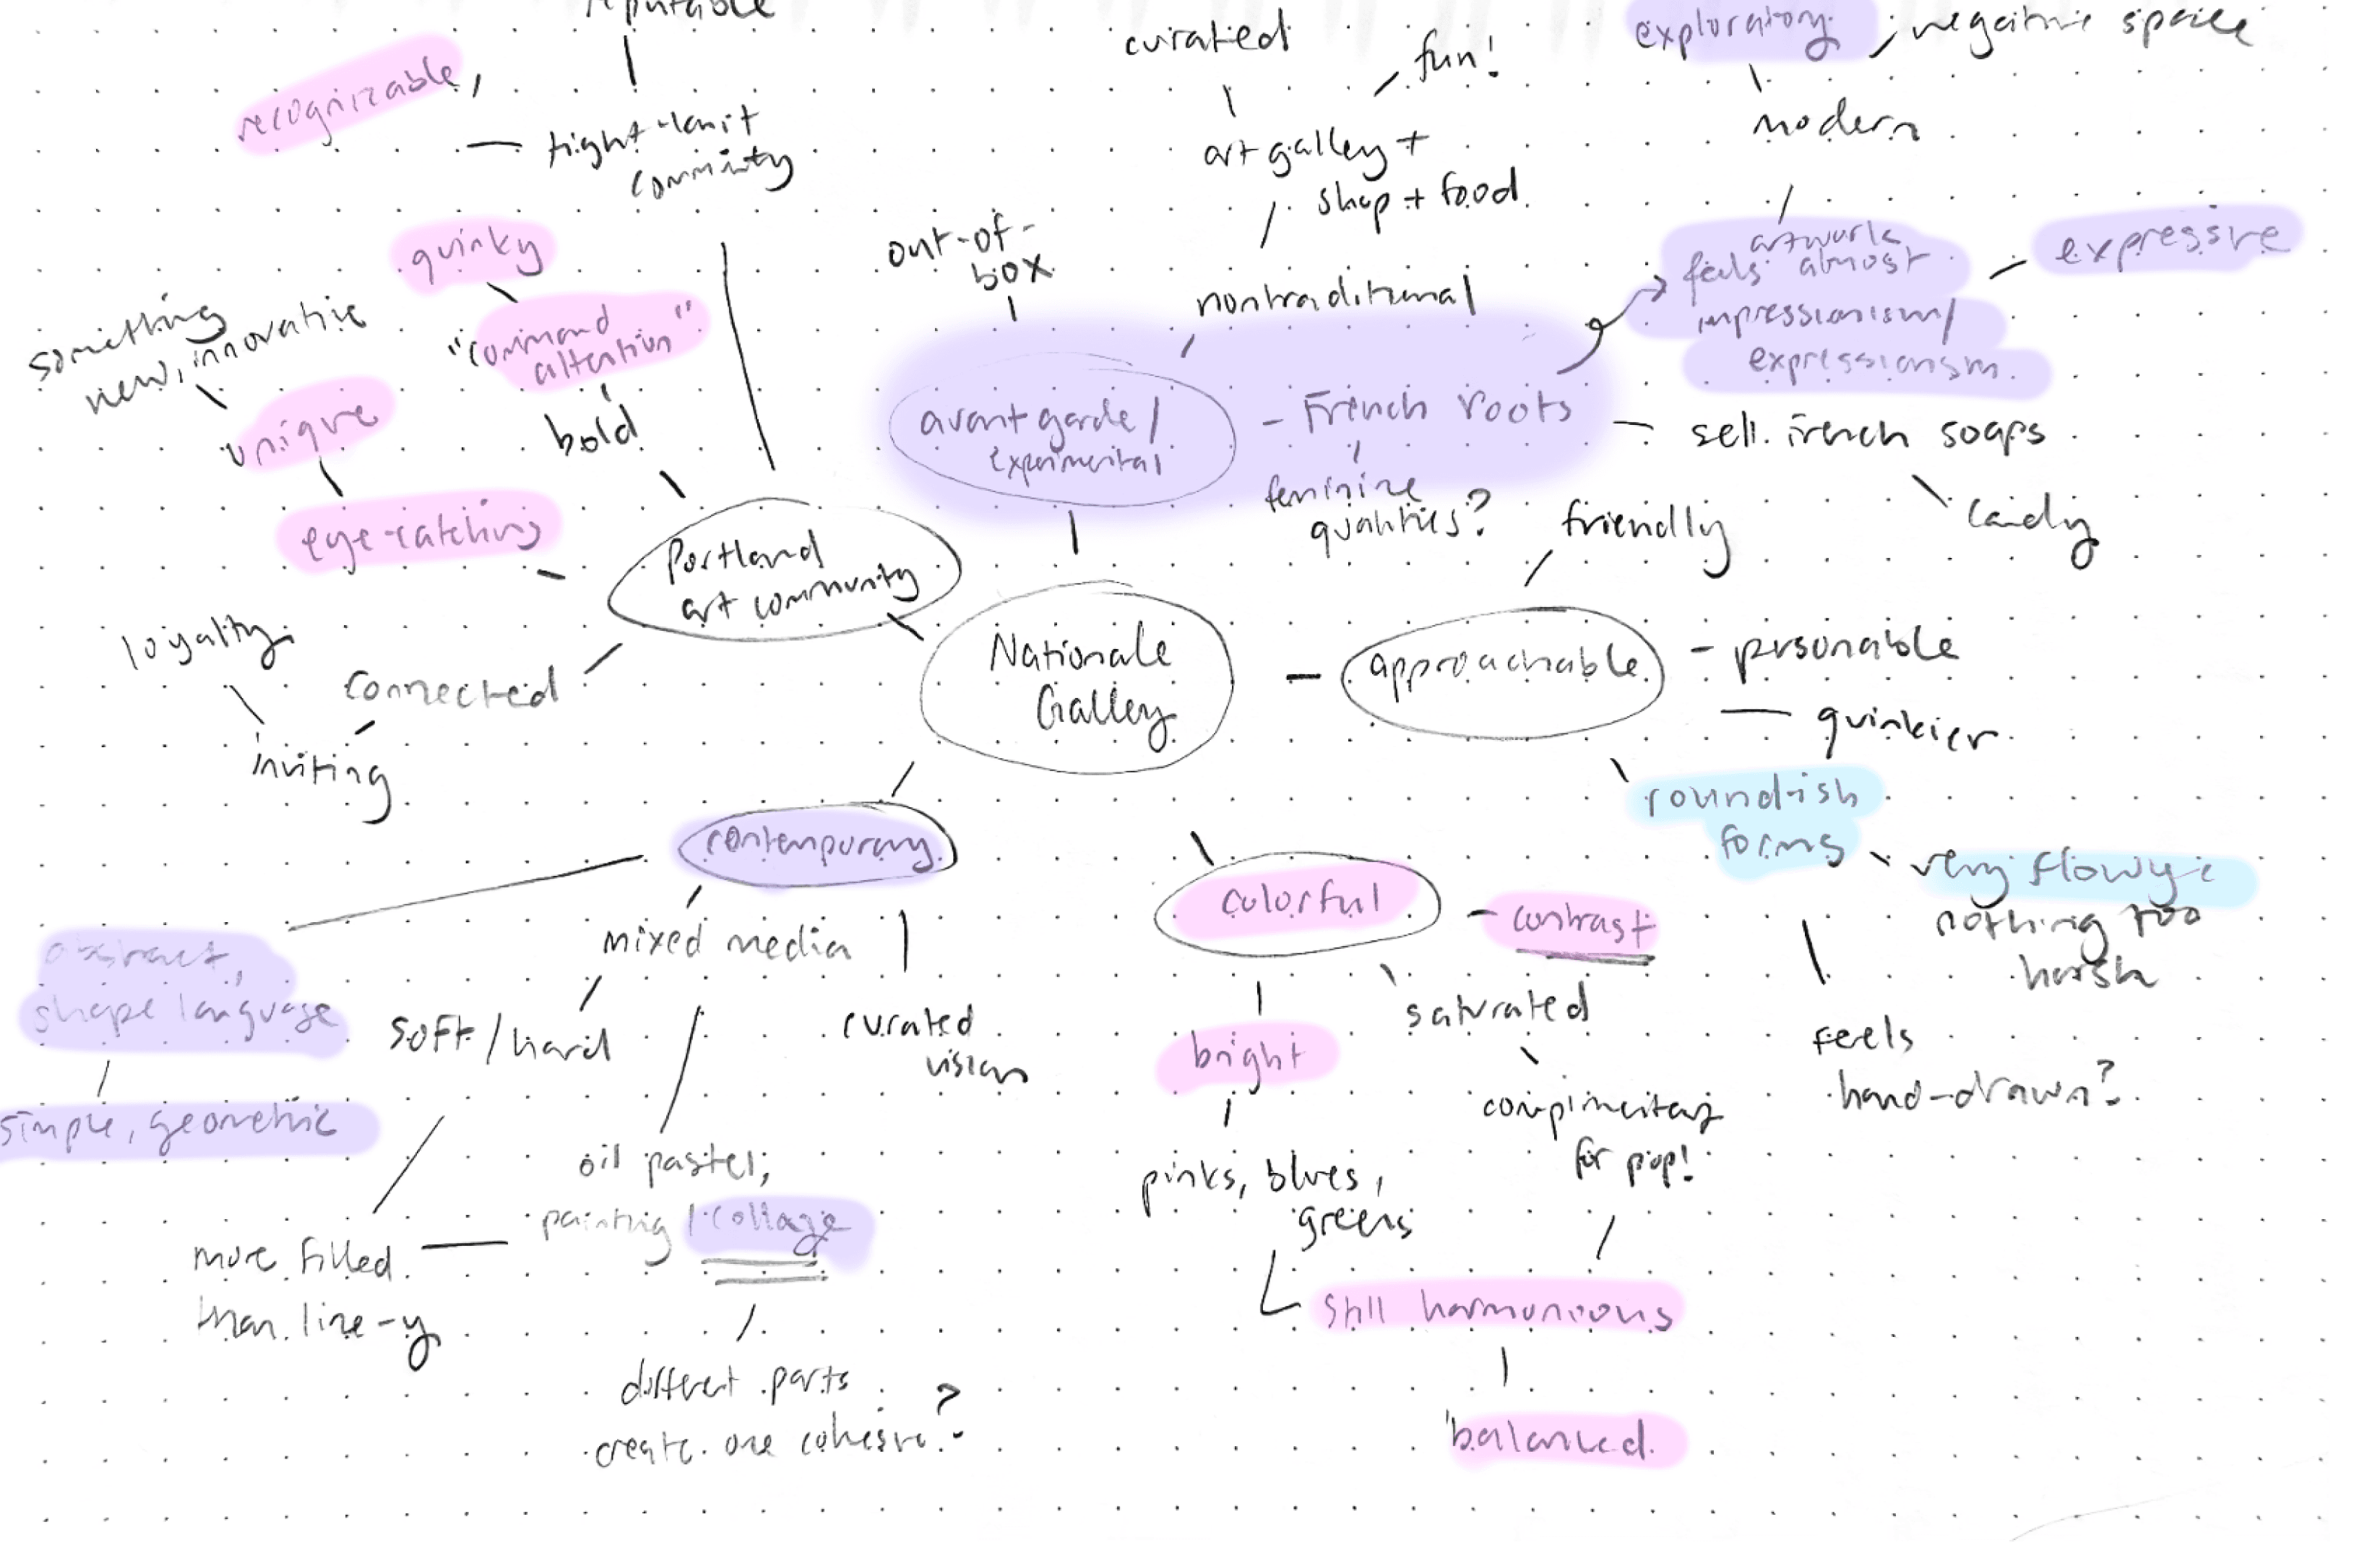 reputable
recognizable,
tight-knit
community
quirky
"command
attention"
bold
something
new, innovative
unique
eye-catching
Portland
art community
loyalty
connected
inviting
curated
fun!
art gallery +
shop + food
out-of-
box
nontraditional
avant garde/
experimental
- French roots
feminine
qualities?
exploratory
negative space
modern
artwork
feels almost
impressionism/
expressionism
expressive
sell french soaps
candy
Nationale
Gallery
friendly
approachable
- personable
quirkier
roundish
forms
very flowy
nothing too
harsh
feels
hand-drawn?
contemporary
abstract,
shape language
simple, geometric
mixed media
soft/hard
curated
vision
oil pastel,
painting / collage
more filled
than line-y
different parts
create one cohesive?
colorful
contrast
bright
saturated
complimentary
for pop!
pinks, blues,
greens
still harmonious
balanced